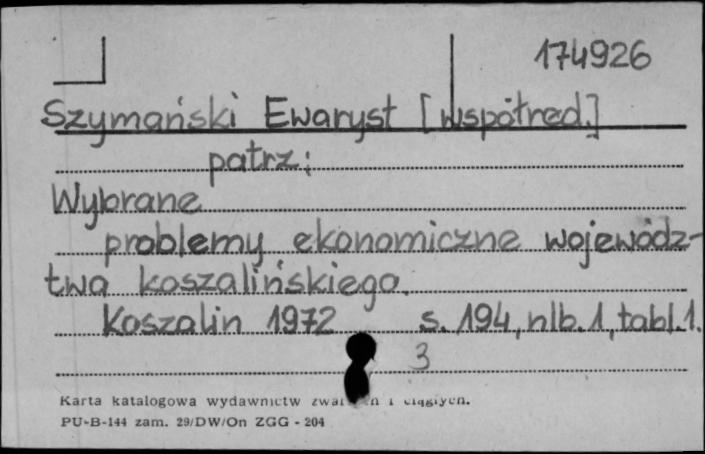 174926
Szymański Ewaryst [współred.]
patrz:
Wybrane
problemy ekonomiczne wojewódz-
twa koszalińskiego.
Koszalin 1972 s. 194, nlb. 1, tabl. 1.
3
Karta katalogowa wydawnictw i ciągłych.
PU-B-144 zam. 29/DW/On ZGG - 204